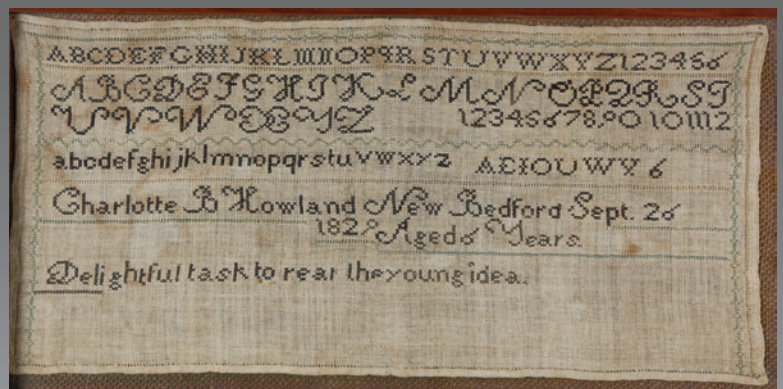 ABCDEFGHIJKLMNOPQRSTUVWXYZ123456
ABCDEFGHIKLMNOPQRST
UVWXYZ 1234567890101112
abcdefghijklmnopqrstuvwxyz AEIOUWY 6
Charlotte B Howland New Bedford Sept. 26
1829 Aged 6 Years.
Delightful task to rear the young idea.